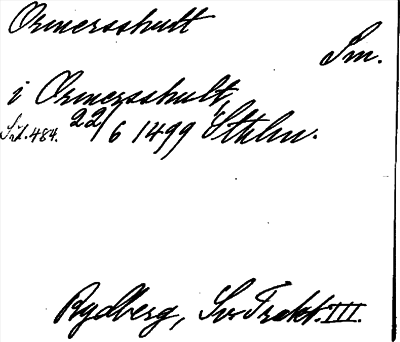 Ormersshult
Sm.
i Ormersshult,
Sid. 484. 22/6 1499 Sthlm.
Rydberg, Sv Trakt. III.